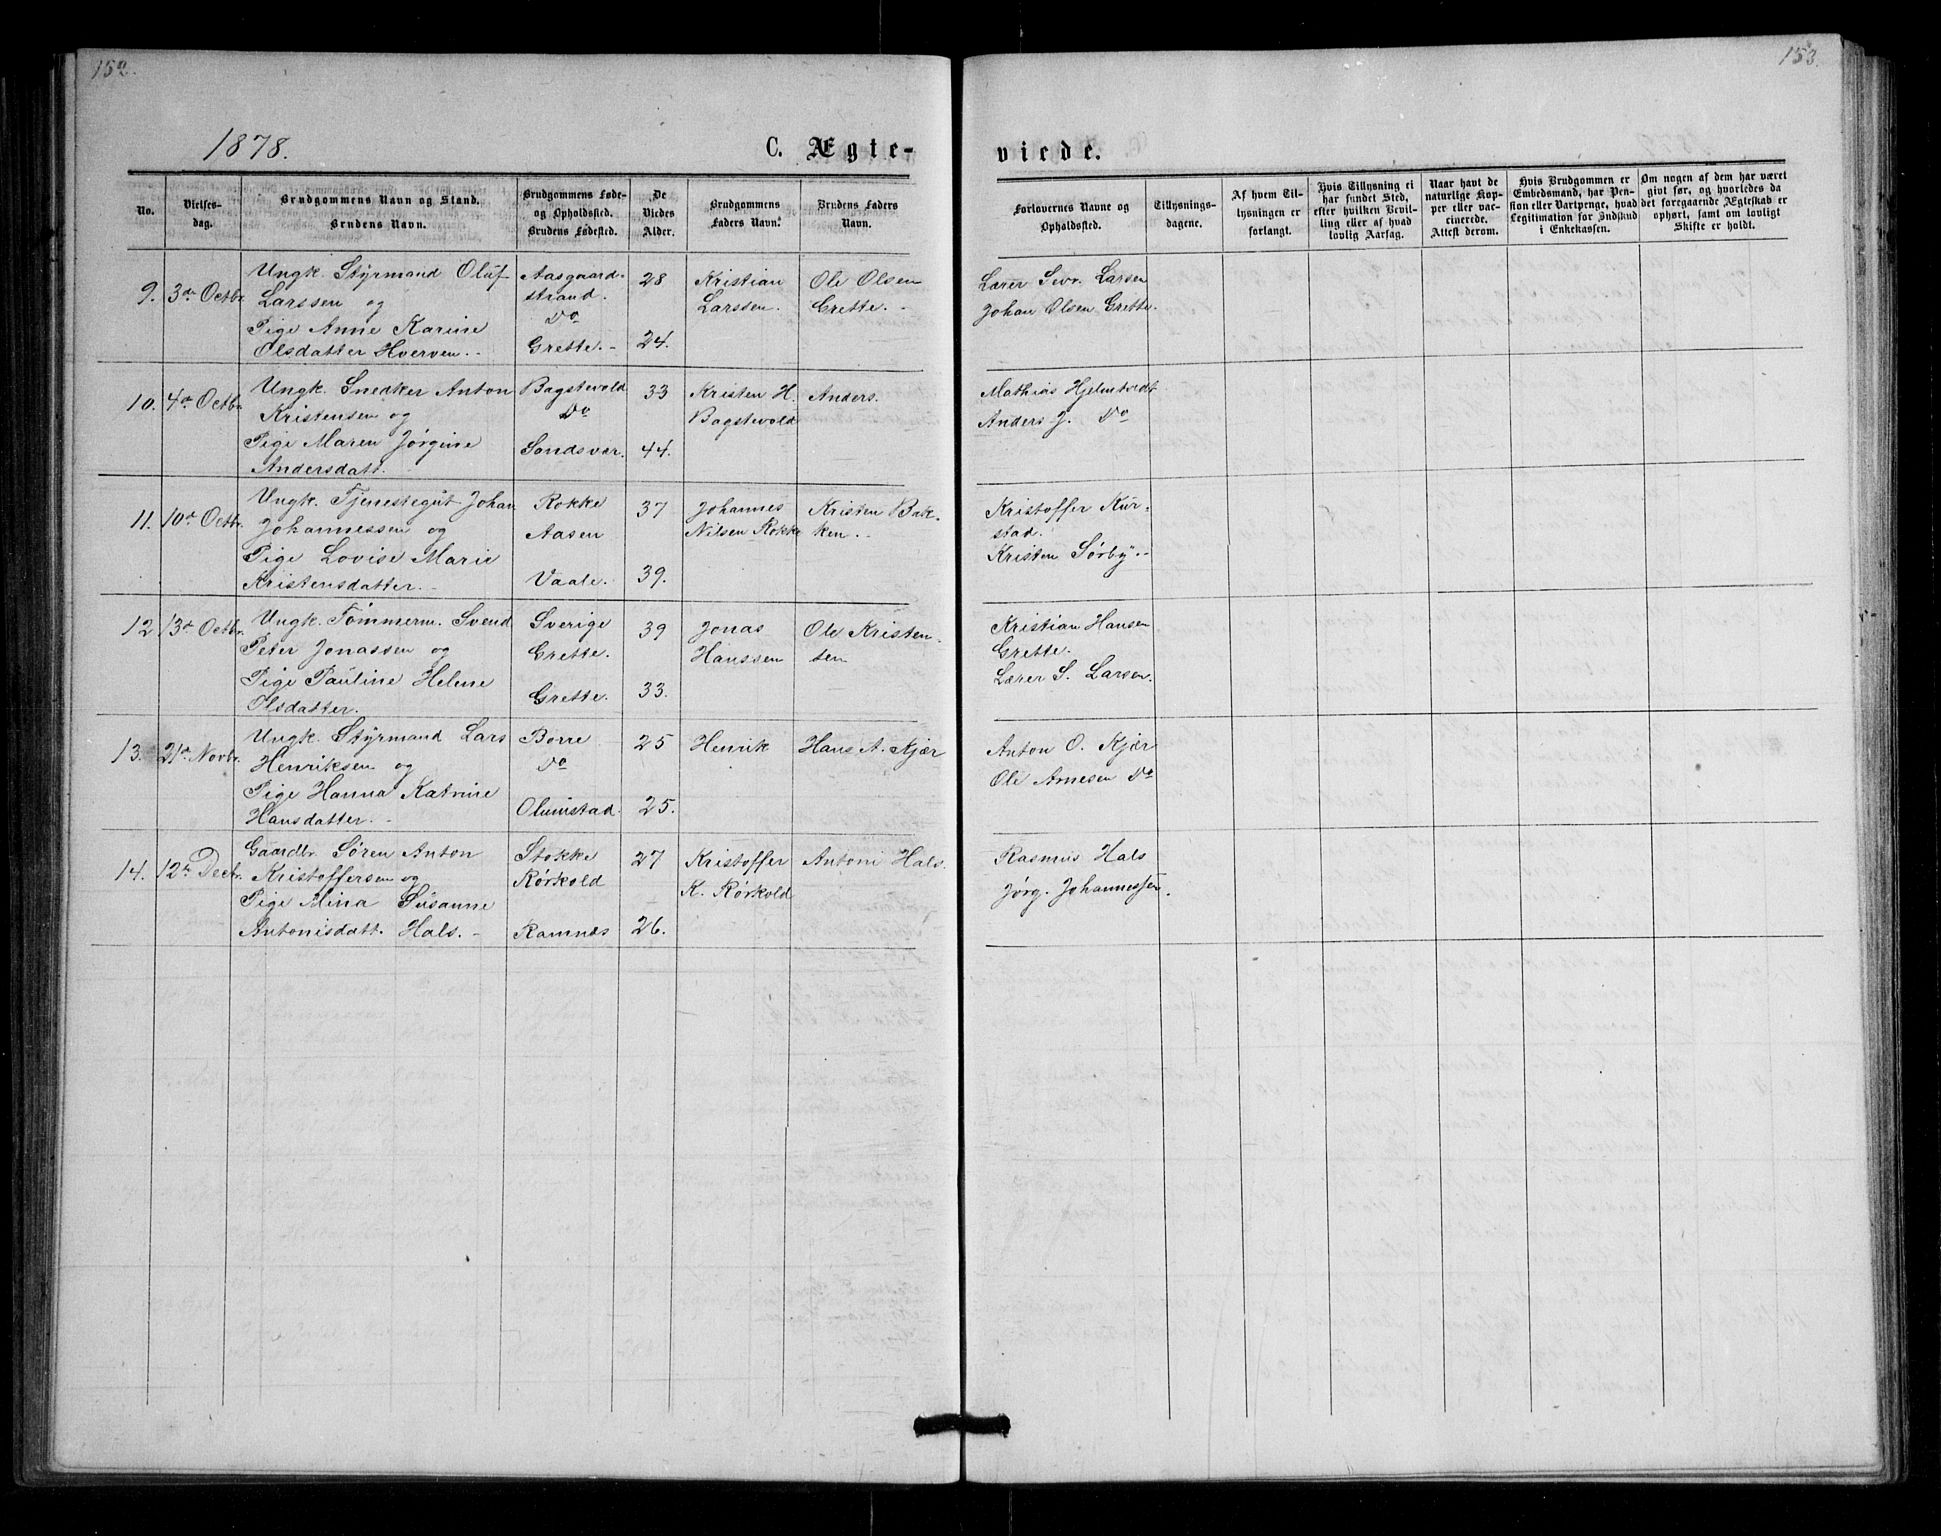 152.
1878.
C. Ægte-
No.
Vielses-
dag.
Brudgommens Navn og Stand.
Brudens Navn.
Brudgommens Føde-
og Opholdssted.
Brudens Fødested.
De
Viedes
Alder.
Brudgommens
Faders Navn.
Brudens Faders
Navn.
9. 3die Octbr. Ungk. Styrmand Oluf Aasgaard- 28 Kristian Ole Olsen
Larssen og strand. Larssen. Grette.
Do
Pige Anne Karine
Olsdatter Hverven. Grette. 24.
10. 4de Octbr. Ungk. Snedker Anton Bagstevold 33 Kristen H. Anders.
Kristensen og Do Bagstevold
Pige Maren Jørgine Sondsvær. 44.
Andersdatt.
11. 10de Octbr. Ungk. Tjenestegut Johan Rokke 37 Johannes Kristen Bak-
Johannessen og Aasen Nilsen Rokke ken.
Pige Lovise Marie
Kristensdatter. Vaale. 39.
12 13de Octbr. Ungk. Tømmerm. Svend Sverige 39 Jonas Ole Kristen-
Peter Jonassen og Grette. Hanssen sen
Pige Pauline Helene Grette. 33.
Olsdatter.
13. 21de Novbr. Ungk. Styrmand Lars Borre 25 Henrik Hans A. Kjær
Henriksen og Do
Pige Hanna Katrine
Hansdatter. Olumstad. 25.
14. 12te Decbr. Gaardbr. Søren Anton Stokke 27 Kristoffer Antoni Hals.
Kristoffersen og Rørkold K. Rørkold
Pige Mina Susanne
Antonisdatt. Hals. Ramnæs 26.
153.
viede.
Forlovernes Navne og
Opholdssted.
Tillysnings-
dagene.
Af hvem Til-
lysningen er
forlangt.
Hvis Tillysning ei
har fundet Sted,
efter hvilken Bevil-
ling eller af hvad
lovlig Aarsag.
Naar havt de
naturlige Kop-
per eller vac-
cinerede.
Attest derom.
Hvis Brudgommen er
Embedsmand, har Pen-
sion eller Vartpenge, hvad
Legitimation for Indskud
i Enkekassen.
Om nogen af dem har været
givt før, og hvorledes da
det foregaaende Ægteskab er
ophørt, samt om lovligt
Skifte er holdt.
Lærer Sevr. Larsen
Johan Olsen Grette.
Mathias Hjelmtvedt
Anders J. Do
Kristoffer Kur-
stad.
Kristen Sørby.
Kristian Hansen
Grette.
Lærer S. Larsen.
Anton O. Kjær
Ole Arnesen Do
Rasmus Hals
Jørg. Johannessen.